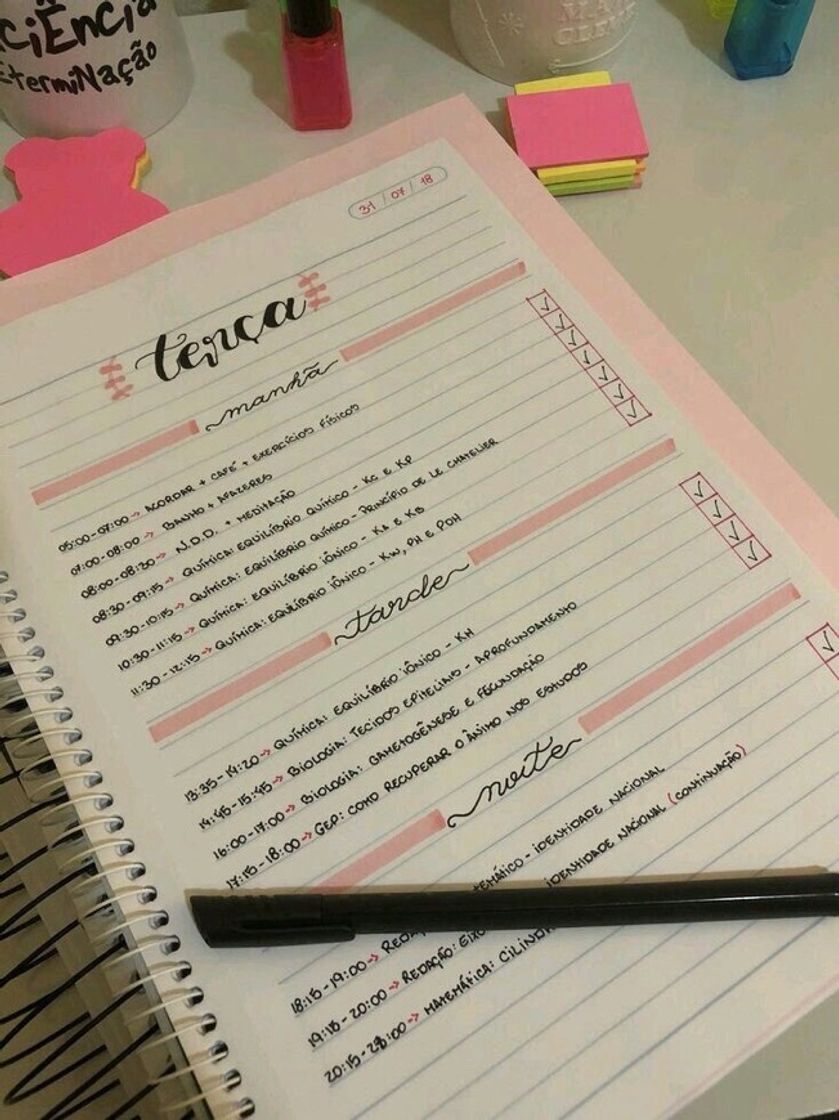 ciÊncia
etermiNação
31/07/18
terça
manhã
05:00-07:00 → ACORDAR + CAFÉ + EXERCÍCIOS FÍSICOS
07:00-08:00 → BANHO + AFAZERES
08:00-08:30 → N.D.D. + MEDITAÇÃO
08:30-09:15 → QUÍMICA: EQUILÍBRIO QUÍMICO - KC E KP
09:30-10:15 → QUÍMICA: EQUILÍBRIO QUÍMICO - PRINCÍPIO DE LE CHATELIER
10:30-11:15 → QUÍMICA: EQUILÍBRIO IÔNICO - KA E KB
11:30-12:15 → QUÍMICA: EQUILÍBRIO IÔNICO - KW, PH E POH
tarde
13:35-14:20 → QUÍMICA: EQUILÍBRIO IÔNICO - KH
14:45-15:45 → BIOLOGIA: TECIDOS EPITELIAIS - APROFUNDAMENTO
16:00-17:00 → BIOLOGIA: GAMETOGÊNESE E FECUNDAÇÃO
17:15-18:00 → GEP: COMO RECUPERAR O ÂNIMO NOS ESTUDOS
noite
18:15-19:00 → REDA TEMÁTICO - IDENTIDADE NACIONAL
19:15-20:00 → REDAÇÃO: EIXO IDENTIDADE NACIONAL (CONTINUAÇÃO)
20:15- :00 → MATEMÁTICA: CILINDR